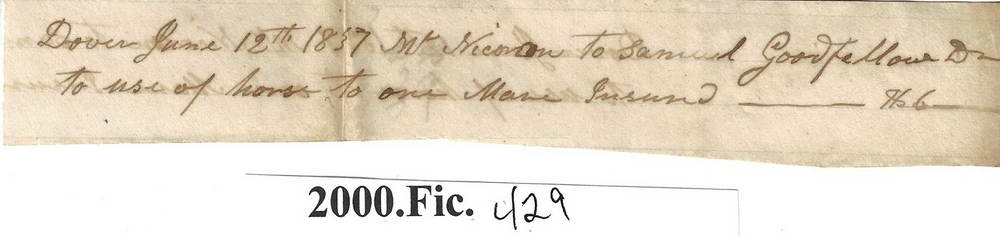 Dover June 12th 1837 Mr Nicoson to Samuel Goodfellow Dr
to use of horse to one Mare Insured —— $6 —
2000.Fic. 429